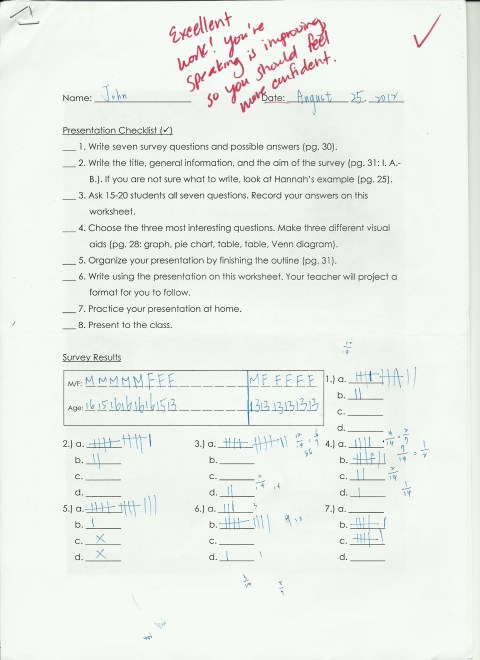 Excellent
work! you're
speaking is improving,
so you should feel
more confident.
Name: John Date: August 25, 2012
Presentation Checklist (✓)
___ 1. Write seven survey questions and possible answers (pg. 30).
___ 2. Write the title, general information, and the aim of the survey (pg. 31: I. A.-
B.). If you are not sure what to write, look at Hannah's example (pg. 25).
___ 3. Ask 15-20 students all seven questions. Record your answers on this
worksheet.
___ 4. Choose the three most interesting questions. Make three different visual
aids (pg. 28: graph, pie chart, table, table, Venn diagram).
___ 5. Organize your presentation by finishing the outline (pg. 31).
___ 6. Write using the presentation on this worksheet. Your teacher will project a
format for you to follow.
___ 7. Practice your presentation at home.
___ 8. Present to the class.
Survey Results
M/F: M M M M M F F F M F F F F F 1.) a.
Age: 16 15 16 16 16 16 15 13 13 13 13 13 13 13 b.
c.
d.
2.) a. 3.) a. 4.) a.
b. b. b.
c. c. c.
d. d. d.
5.) a. 6.) a. 7.) a.
b. b. b.
c. X c. c.
d. X d. d.